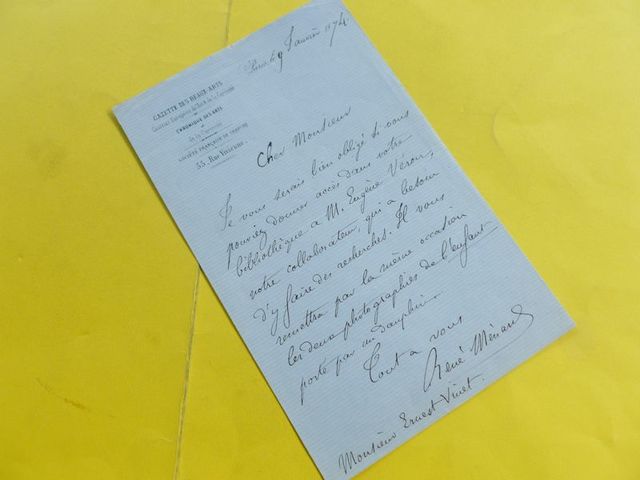 Paris le 9 Janvier 1874
GAZETTE DES BEAUX-ARTS
Courrier Européen de l'Art et de la Curiosité
CHRONIQUE DES ARTS
et de la Curiosité
SOCIÉTÉ FRANÇAISE DE GRAVURE
55, Rue Vivienne
Cher Monsieur
Je vous serais bien obligé si vous
pouviez donner accès dans votre
bibliothèque a M. Eugène Véron,
notre collaborateur, qui a besoin
d'y faire des recherches. Il vous
remettra par la même occasion
les deux photographies de l'enfant
porté par un dauphin.
Tout a vous
René Ménard
Monsieur Ernest Vinet.